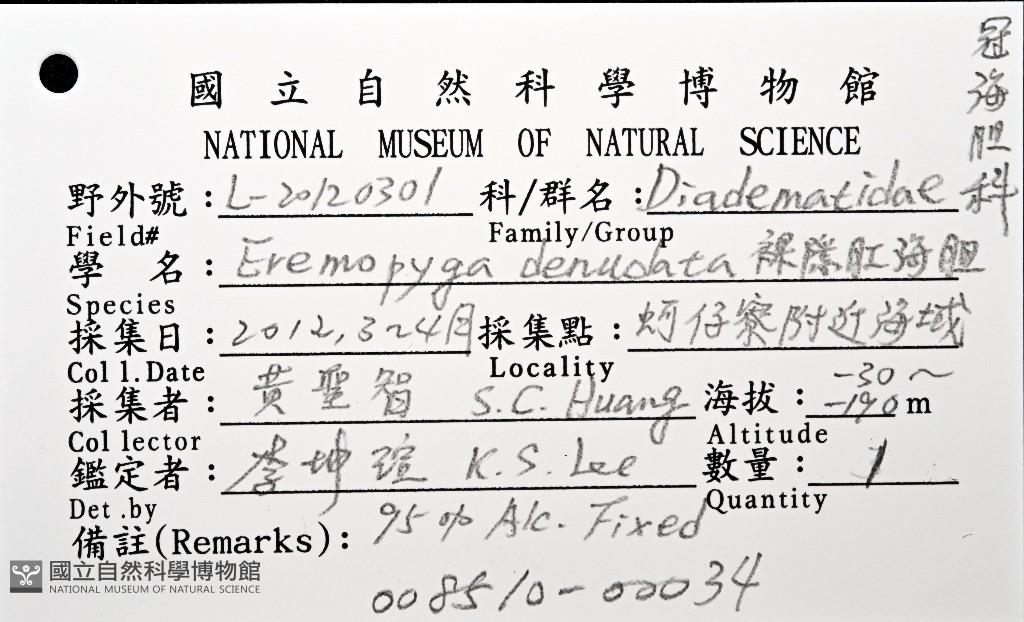 冠海胆科
國立自然科學博物館
NATIONAL MUSEUM OF NATURAL SCIENCE
野外號：L-20120301 科/群名：Diadematidae
Field# Family/Group
學 名：Eremopyga denudata 裸隙肛海胆
Species
採集日：2012,3~4月 採集點：蚵仔寮附近海域
Coll.Date Locality
採集者：黃聖智 S.C. Huang 海拔：-30～-190m
Collector Altitude
鑑定者：李坤瑄 K.S. Lee 數量：1
Det.by Quantity
備註(Remarks)：95% Alc. Fixed
008510-00034
國立自然科學博物館
NATIONAL MUSEUM OF NATURAL SCIENCE